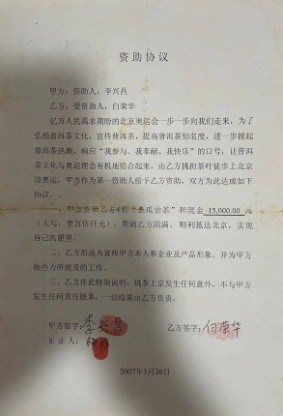 资助协议
甲方：资助人，李兴昌
乙方：受资助人，白荣华
亿万人民渴求期盼的北京奥运会一步一步向我们走来，为了
弘扬普洱茶文化，宣传普洱茶，提高普洱茶知名度，进一步掀起
普洱茶热潮，响应“我参与、我奉献、我快乐”的口号，让普洱
茶文化与奥运理念有机地结合起来，由乙方挑担茶叶徒步上北京
迎奥运，甲方作为第一资助人给予乙方资助，双方为此达成如下
协议。
一、甲方资助乙方 贡茶”和现金 15,000.00 元
（大写：壹万伍仟元），帮助乙方圆满、顺利抵达北京，实现
自己的愿望。
二、乙方沿途为宣传甲方本人和企业及产品形象，并为甲方
做些力所能及的工作。
三、乙方在此特别说明，挑茶上京发生任何意外，不与甲方
发生任何责任联系，一切结果由乙方负责。
甲方签字：李兴昌 乙方签字：白荣华
见证人：
2007年3月26日